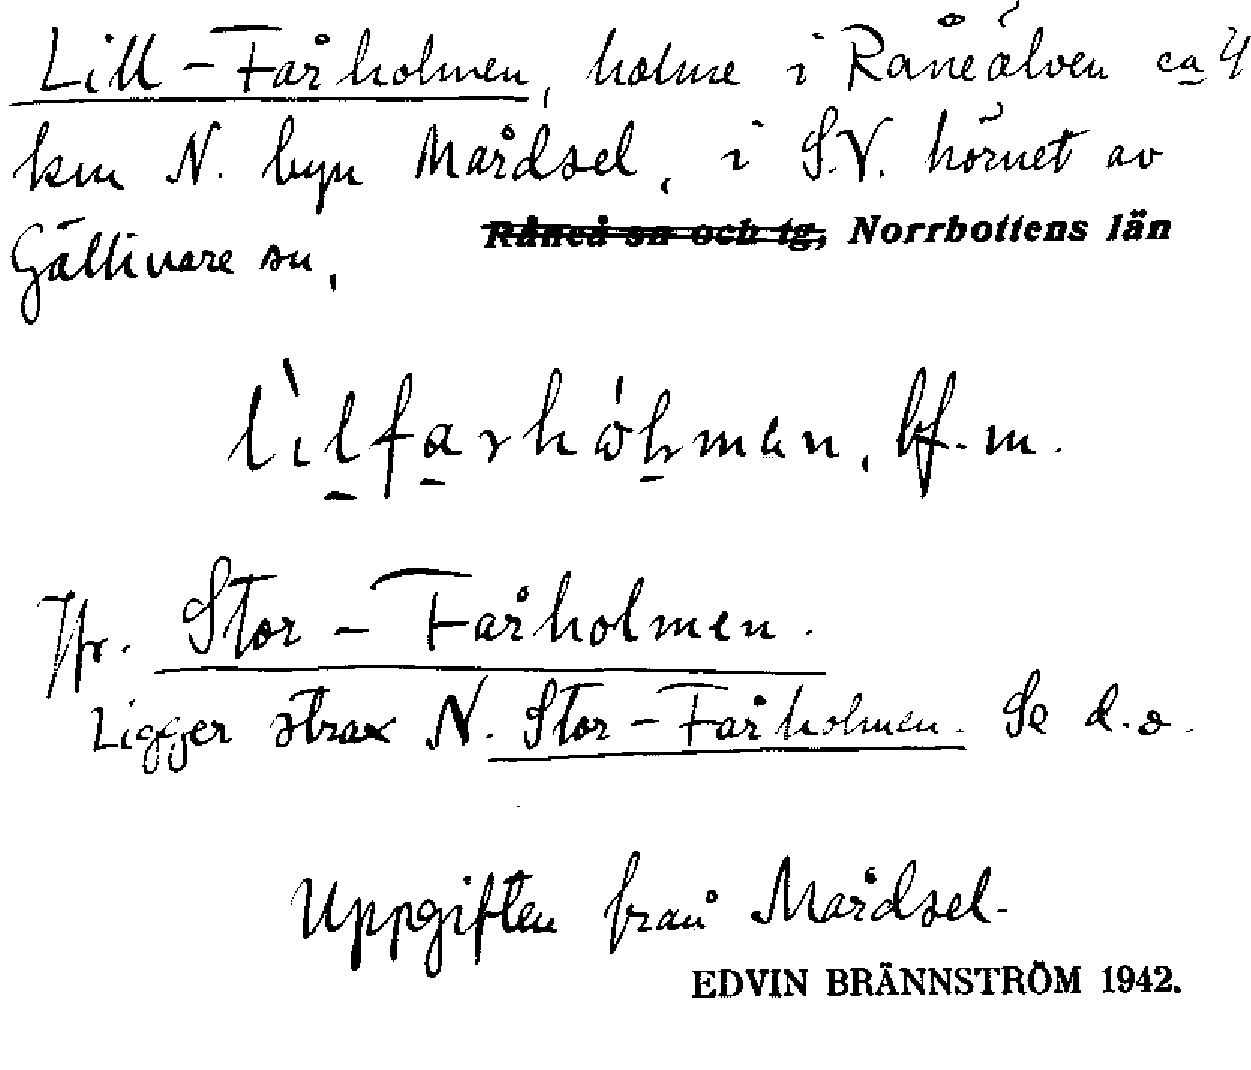 Lill-Fårholmen, holme i Råneälven ca 4
km N. byn Mårdsel, i S.V. hörnet av
Gällivare sn, Råneå sn och tg, Norrbottens län
bf. m.
Jfr. Stor-Fårholmen.
Ligger strax N. Stor-Fårholmen. Se d.o.
Uppgiften från Mårdsel.
EDVIN BRÄNNSTRÖM 1942.